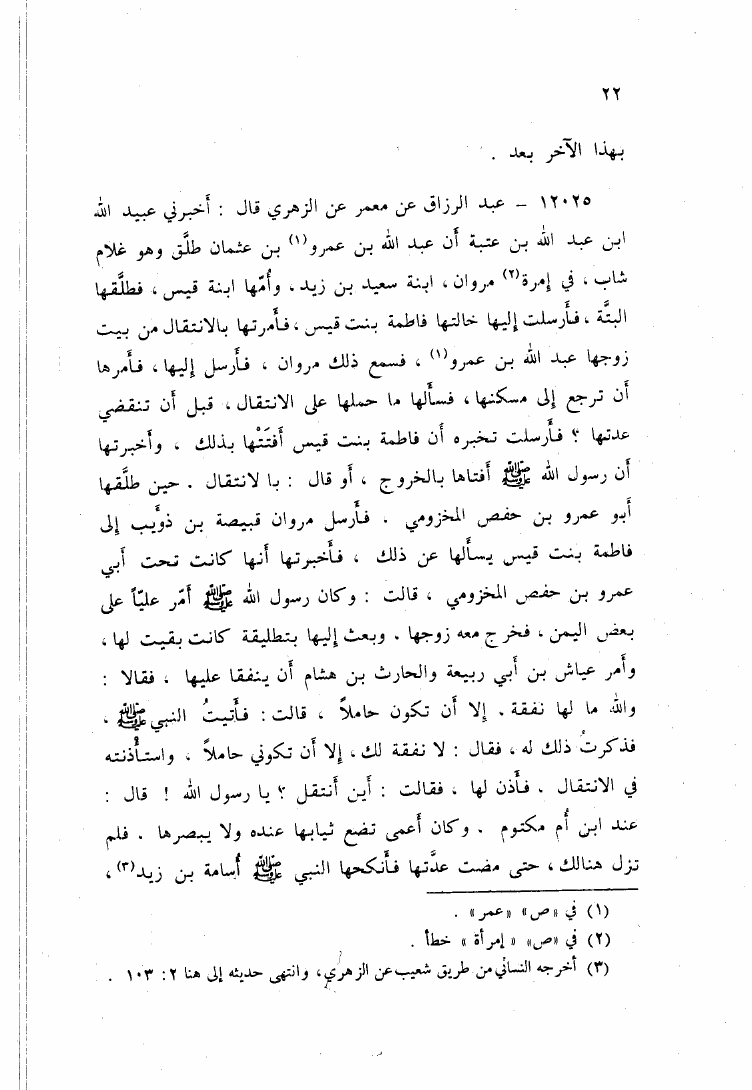 ٢٢
بهذا الآخر بعد .
١٢٠٢٥ – عبد الرزاق عن معمر عن الزهري قال : أخبرني عبيد الله
ابن عبد الله بن عتبة أن عبد الله بن عمرو(١) بن عثمان طلَّق وهو غلام
شاب ، في إمرة(٢) مروان ، ابنة سعيد بن زيد . وأُمّها ابنة قيس ، فطلَّقها
البتَّة ، فأرسلت إليها خالتها فاطمة بنت قيس ، فأمرتها بالانتقال من بيت
زوجها عبد الله بن عمرو(١) ، فسمع ذلك مروان ، فأرسل إليها ، فأمرها
أن ترجع إلى مسكنها ، فسألها ما حملها على الانتقال ، قبل أن تنقضي
عدتها ؟ فأرسلت تخبره أن فاطمة بنت قيس أفتَتْها بذلك ، وأخبرتها
أن رسول الله ﷺ أفتاها بالخروج ، أو قال : با لانتقال . حين طلَّقها
أبو عمرو بن حفص المخزومي . فأرسل مروان قبيصة بن ذؤيب إلى
فاطمة بنت قيس يسألها عن ذلك ، فأخبرتها أنها كانت تحت أبي
عمرو بن حفص المخزومي ، قالت : وكان رسول الله ﷺ أمّر عليّاً على
بعض اليمن ، فخرج معه زوجها . وبعث إليها بتطليقة كانت بقيت لها ،
وأمر عياش بن أبي ربيعة والحارث بن هشام أن ينفقا عليها ، فقالا :
والله ما لها نفقة . إلا أن تكون حاملاً ، قالت : فأتيتُ النبي ﷺ ،
فذكرتُ ذلك له ، فقال : لا نفقة لك ، إلا أن تكوني حاملاً ، واستأذنته
في الانتقال . فأذن لها ، فقالت : أين أنتقل ؟ يا رسول الله ! قال :
عند ابن أُم مكتوم . وكان أعمى تضع ثيابها عنده ولا يبصرها . فلم
تزل هنالك ، حتى مضت عدَّتها فأنكحها النبي ﷺ أُسامة بن زيد(٣) ،
(١) في «ص» «عمر» .
(٢) في «ص» « إمرأة » خطأ .
(٣) أخرجه النسائي من طريق شعيب عن الزهري ، وانتهى حديثه إلى هنا ٢ : ١٠٣ .